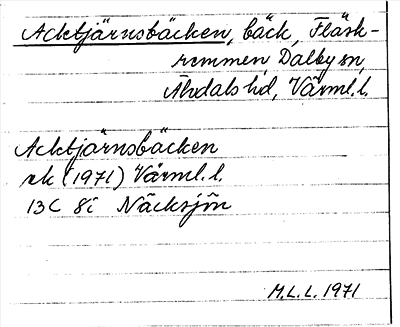 Acktjärnsbäcken, bäck, Fläsk-
remmen, Dalby sn,
Älvdals hd, Värml. l.
Acktjärnsbäcken
ek (1971) Värml. l.
13C 8i Näcksjön
M.L.L. 1971